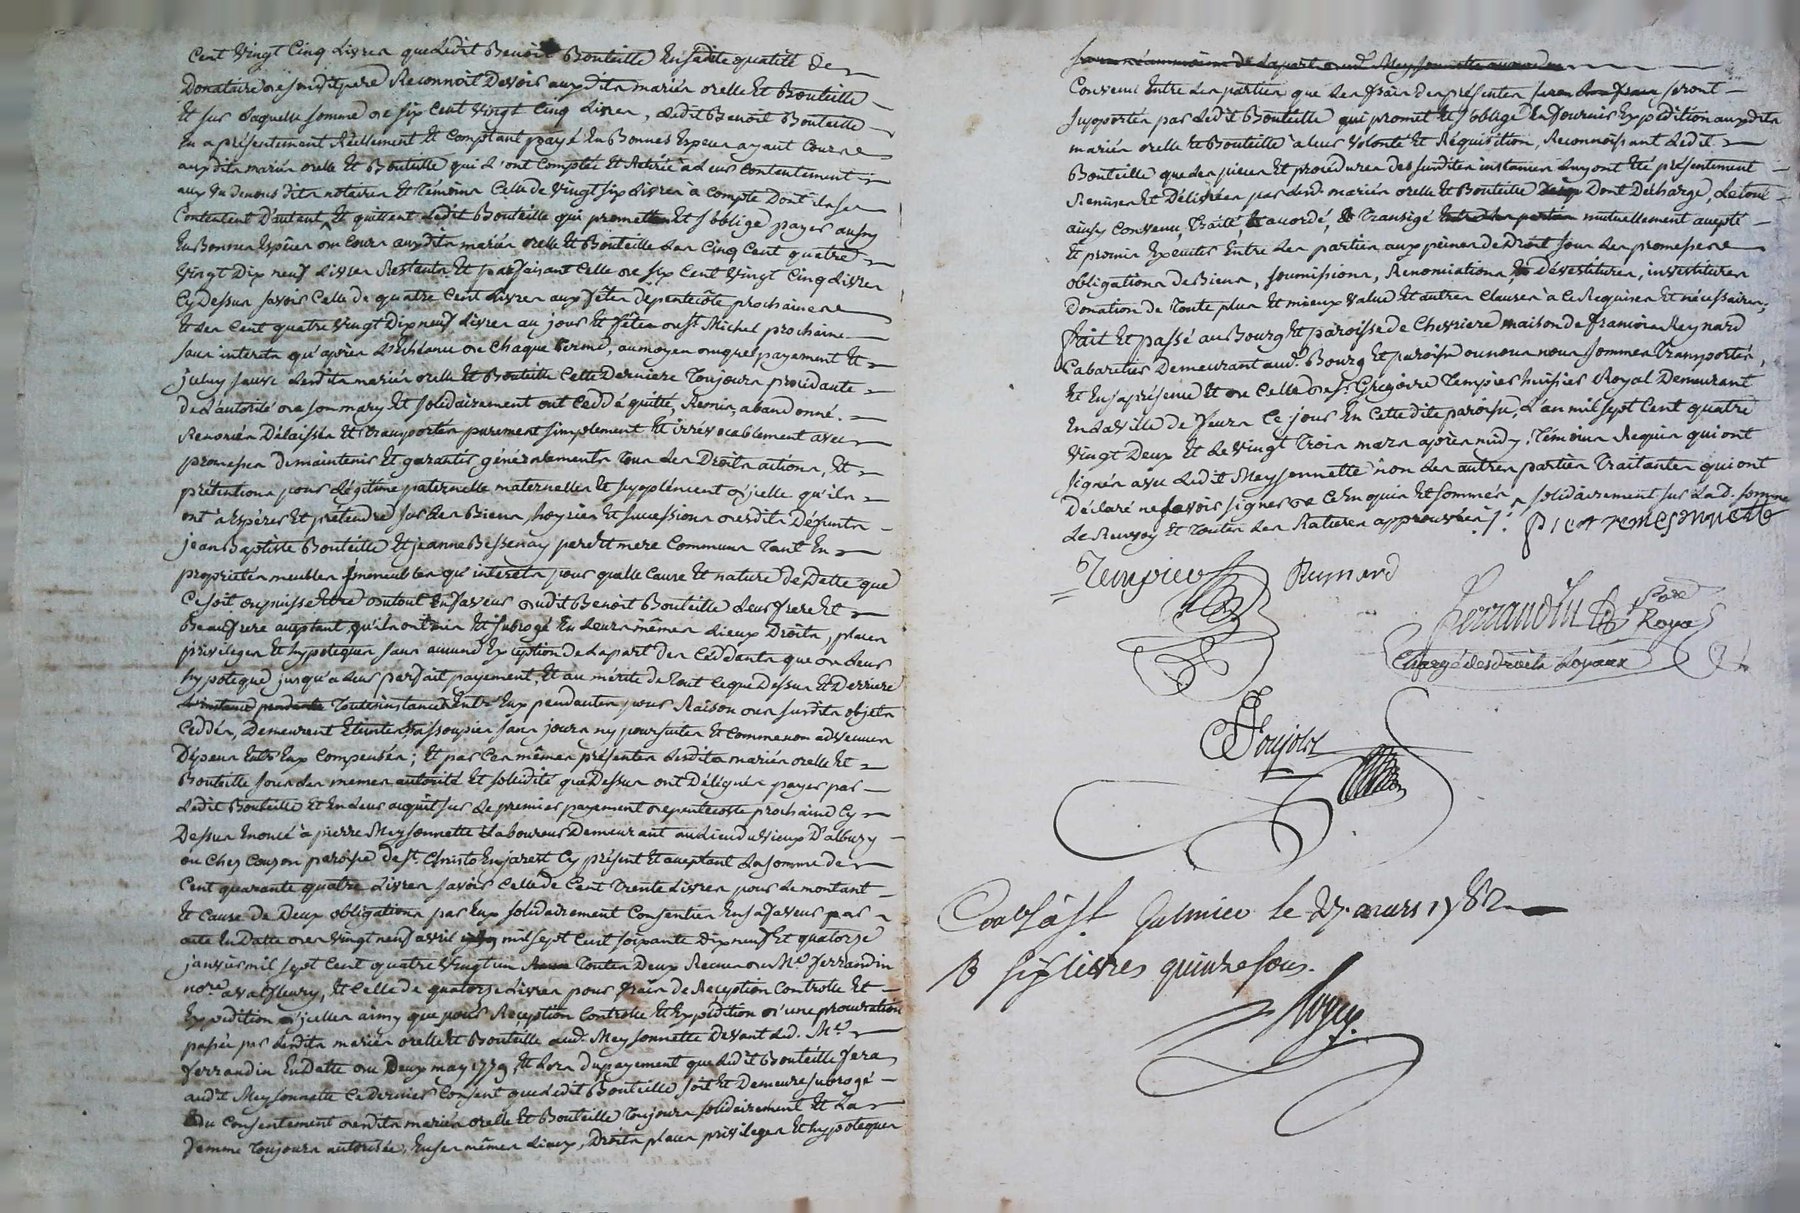 Cent Vingt Cinq Livres que Ledit Benoit Bouteille En sadite qualité de
Donataire de sondit pere Reconnoit Devoir auxdits mariés orelle Et Bouteille
Et sur Laquelle somme de six Cent Vingt Cinq Livres, Ledit Benoit Bouteille
En a présentement Réellement Et Comptant payé En Bonnes Especes ayant Cours
auxdits mariés orelle Et Bouteille qui L'ont Comptée Et Retirée à Leur Contentement
aux vu de nousdits notaires Et témoins Celle de Vingt six Livres à Compte Dont ils se
Contentent D'autant, Et quittent Ledit Bouteille qui promet Et s'oblige payer aussy
En Bonnes Espèces au Cours auxdits mariés orelle Et Bouteille Les Cinq Cent quatre
Vingt Dix neuf Livres Restants Et parfaisant Celle de six Cent Vingt Cinq Livres
Cy Dessus savoir Celle de quatre Cent Livres aux fêtes de pentecôte prochaines
Et Les Cent quatre Vingt Dix neuf Livres au jour Et fête de st Michel prochaine
sans interets qu'après L'Echéance de Chaque terme, au moyen duquel payement Et
jceluy sauve Lesdits mariés orelle Et Bouteille Cette Derniere Toujours procedante
de L'autorité de son mary Et solidairement ont Ceddé quitté, Remis, abandonné
Renoncés Délaissés Et transportés purement simplement Et irrévocablement avec
promesses de maintenir Et garantir généralement tous Les Droits actions, Et
prétentions pour Légitime paternelle maternelle Et supplément d'jcelle qu'ils
ont à Espérer Et prétendre sur Les Biens, hoyries Et successions desdits Défunts
jean Baptiste Bouteille Et jeanne Bessenay pere Et mere Communs Tant En
propriétés meubles jmmeubles qu'interets pour quelle Cause Et nature de Dette que
Ce soit ou puisse Etre du tout En faveur dudit Benoit Bouteille Leur frere Et
Beaufrere aceptant, qu'ils ont mis Et subrogé En Leurs mêmes Lieux Droits, places
privileges Et hypoteques sans aucune Exception de La part des Cèddants que de Leur
hypoteque jusqu'a Leur parfait payement, Et au mérite de tout Ce que Dessus Et Derriere
Toutes instances Entre Eux pendantes pour Raison des susdits objets
Ceddés, Demeurent Eteintes Et assoupies sans jours ny poursuites Et Comme non advenues
Dépens Entre Eux Compensés; Et par Ces mêmes présentes Lesdits mariés orelle Et
Bouteille sous Les memes autorité Et solidité que Dessus ont Délégués payer par
Ledit Bouteille Et En Leur acquit sur Le premier payement de pentecoste prochaine Cy
Dessus Enoncé à pierre Meysonnette Laboureur Demeurant au Lieu du Vieux D'albuzy
ou Chez Couzon paroisse de st Christo En jarest Cy présent Et aceptant La somme de
Cent quarante quatre Livres savoir Celle de Cent Trente Livres pour Le montant
Et Cause de Deux obligations par Eux solidairement Consenties En sa faveur par
acte En Datte des Vingt neuf avril mil sept Cent soixante Dix neuf Et quatorze
janvier mil sept Cent quatre Vingt un Toutes Deux Recues de Me ferrandin
nore a Valfleury, Et Celle de quatorze Livres pour frais de Reception Controlle Et
Expédition d'jcelles ainsy que pour Reception Controlle Et Expédition d'une procuration
passée par Lesdits mariés orelle Et Bouteille aud. Meysonnette Devant Led. Me
ferrandin En Datte du Deux may 1779, Et Lors du payement que Ledit Bouteille fera
audit Meysonnette Ce dernier Consent que Ledit Bouteille soit Et Demeure subrogé
du Consentement desdits mariés orelle Et Bouteille Toujours solidairement Et La
femme Toujours autorisée, En ses mêmes Lieux, Droits places privileges Et hypoteques
Convenu Entre Les parties que Les frais des présentes seront
supportés par Ledit Bouteille qui promet Et s'oblige En fournir Expédition auxdits
mariés orelle Et Bouteille à leur Volonté Et Réquisition, Reconnoissant Ledit
Bouteille que Les pieces Et procedures des susdites instances Luy ont Eté présentement
Remises Et Délivrées par Lesd. mariés orelle Et Bouteille Dont Decharge, Le tout
ainsy Convenu, Traité, acordé, Et Transigé mutuellement acepté
Et promis Executer Entre Les parties aux peines de Droit sous Les promesses
obligations de Biens, soumissions, Renonciations, dévestitures, investitures
Donation de Toute plus Et mieux Value Et autres Clauses à Ce Requises Et nécessaires;
fait Et passé au Bourg Et paroisse de Chevriere maison de francois Reynard
Cabaretier Demeurant aud. Bourg Et paroisse ou nous nous sommes Transportés,
Et En sa présence Et de Celle de sr Grégoire Tempier huissier Royal Demeurant
En La Ville de feurs Ce jour En Cette dite paroisse, L'an mil sept Cent quatre
Vingt Deux Et Le Vingt Trois mars après midy. Témoins Requis qui ont
signés avec Ledit Meysonnette non Les autres parties Traitantes qui ont
Déclaré ne savoir signer de Ce Enquis Et sommés, solidairement sur Lad. somme
Le Renvoy Et Toutes Les Ratures approuvées /.
Tempier
Reynard
ferrandin
Royal
Chargé des droits Royaux
Controlé à st Galmier le 27 mars 1782
R six livres quinze sous.